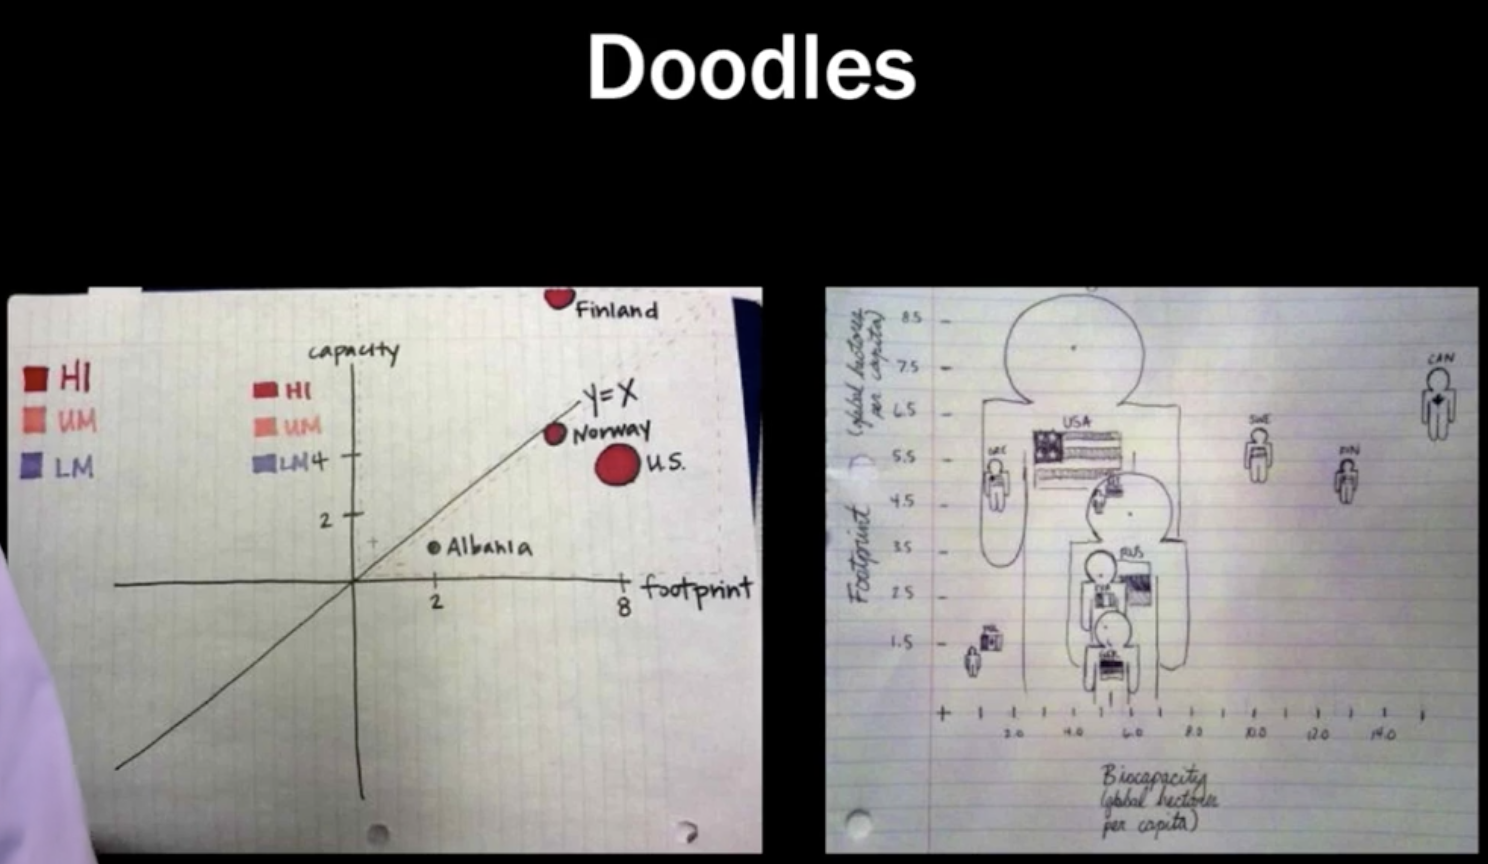 Doodles
Finland
capacity
HI
HI
UM
UM
LM
LM
4
y=x
Norway
U.S.
2
Albania
footprint
2
8
Footprint (global hectares per capita)
8.5
7.5
6.5
5.5
4.5
3.5
2.5
1.5
CAN
USA
SWE
FIN
RUS
2.0
4.0
6.0
8.0
10.0
12.0
14.0
Biocapacity
(global hectares
per capita)